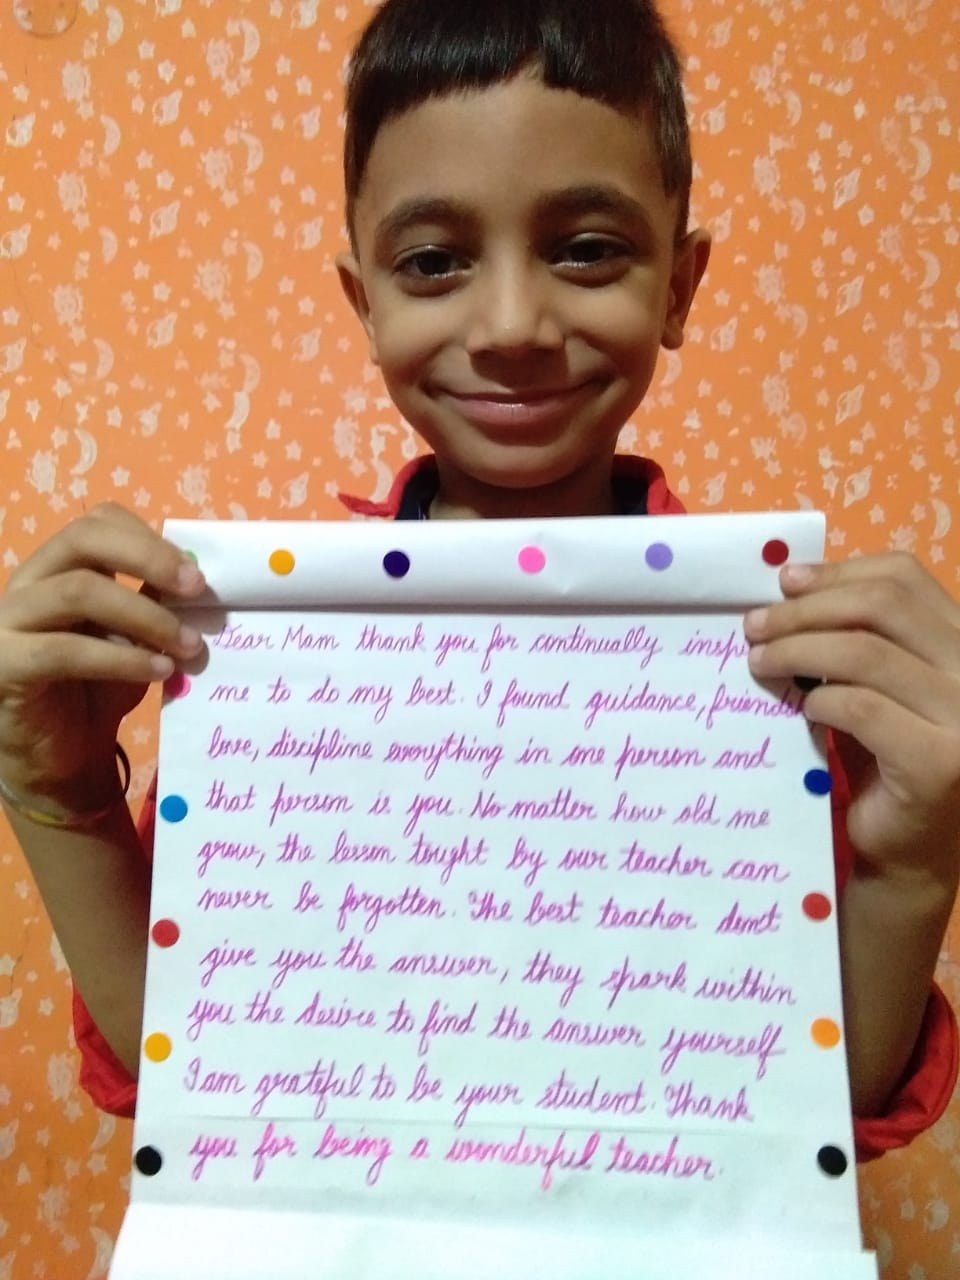 Dear Mam thank you for continually insp
me to do my best. I found guidance, friendsh
love, discipline everything in one person and
that person is you. No matter how old me
grow, the lesson tought by our teacher can
never be forgotten. The best teacher dont
give you the answer, they spark within
you the desire to find the answer yourself
I am grateful to be your student. Thank
you for being a wonderful teacher.